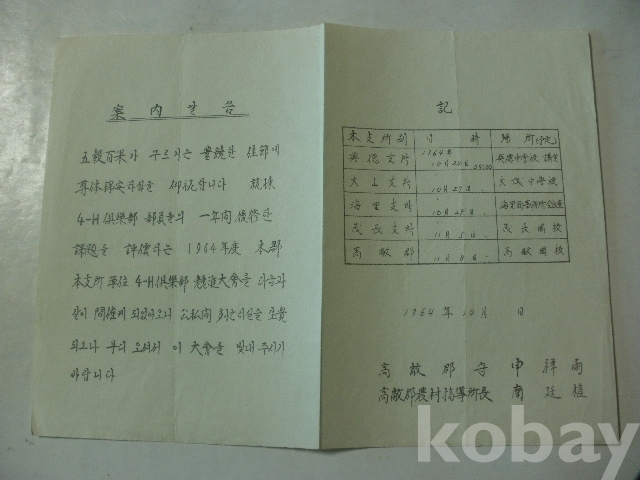 案內말씀
五穀百果가 무르익는 豊饒한 佳節에
尊体錦安하심을 仰祝합니다
4-H俱樂部 部員들의 一年間 履修한
課題을 評價하는 1964年度 本郡
本支所單位 4-H俱樂部 競進大會를 다음과
같이 開催케 되었아오니 公私間
되으나 부디 오셔서 이 大會를 빛내 주시기
바랍니다
記
本支所別 日 時 場所(予定)
興德支所 1964年 10月 24日 09:00 興德中學校 講堂
大山支所 10月 27日 大成中學校
海里支所 10月 28日
茂長支所 11月 5日 茂長國校
高敞郡 11月 8日 高敞國校
1964年 10月 日
高敞郡守 申 雨
高敞郡農村指導所長 廷植
kobay